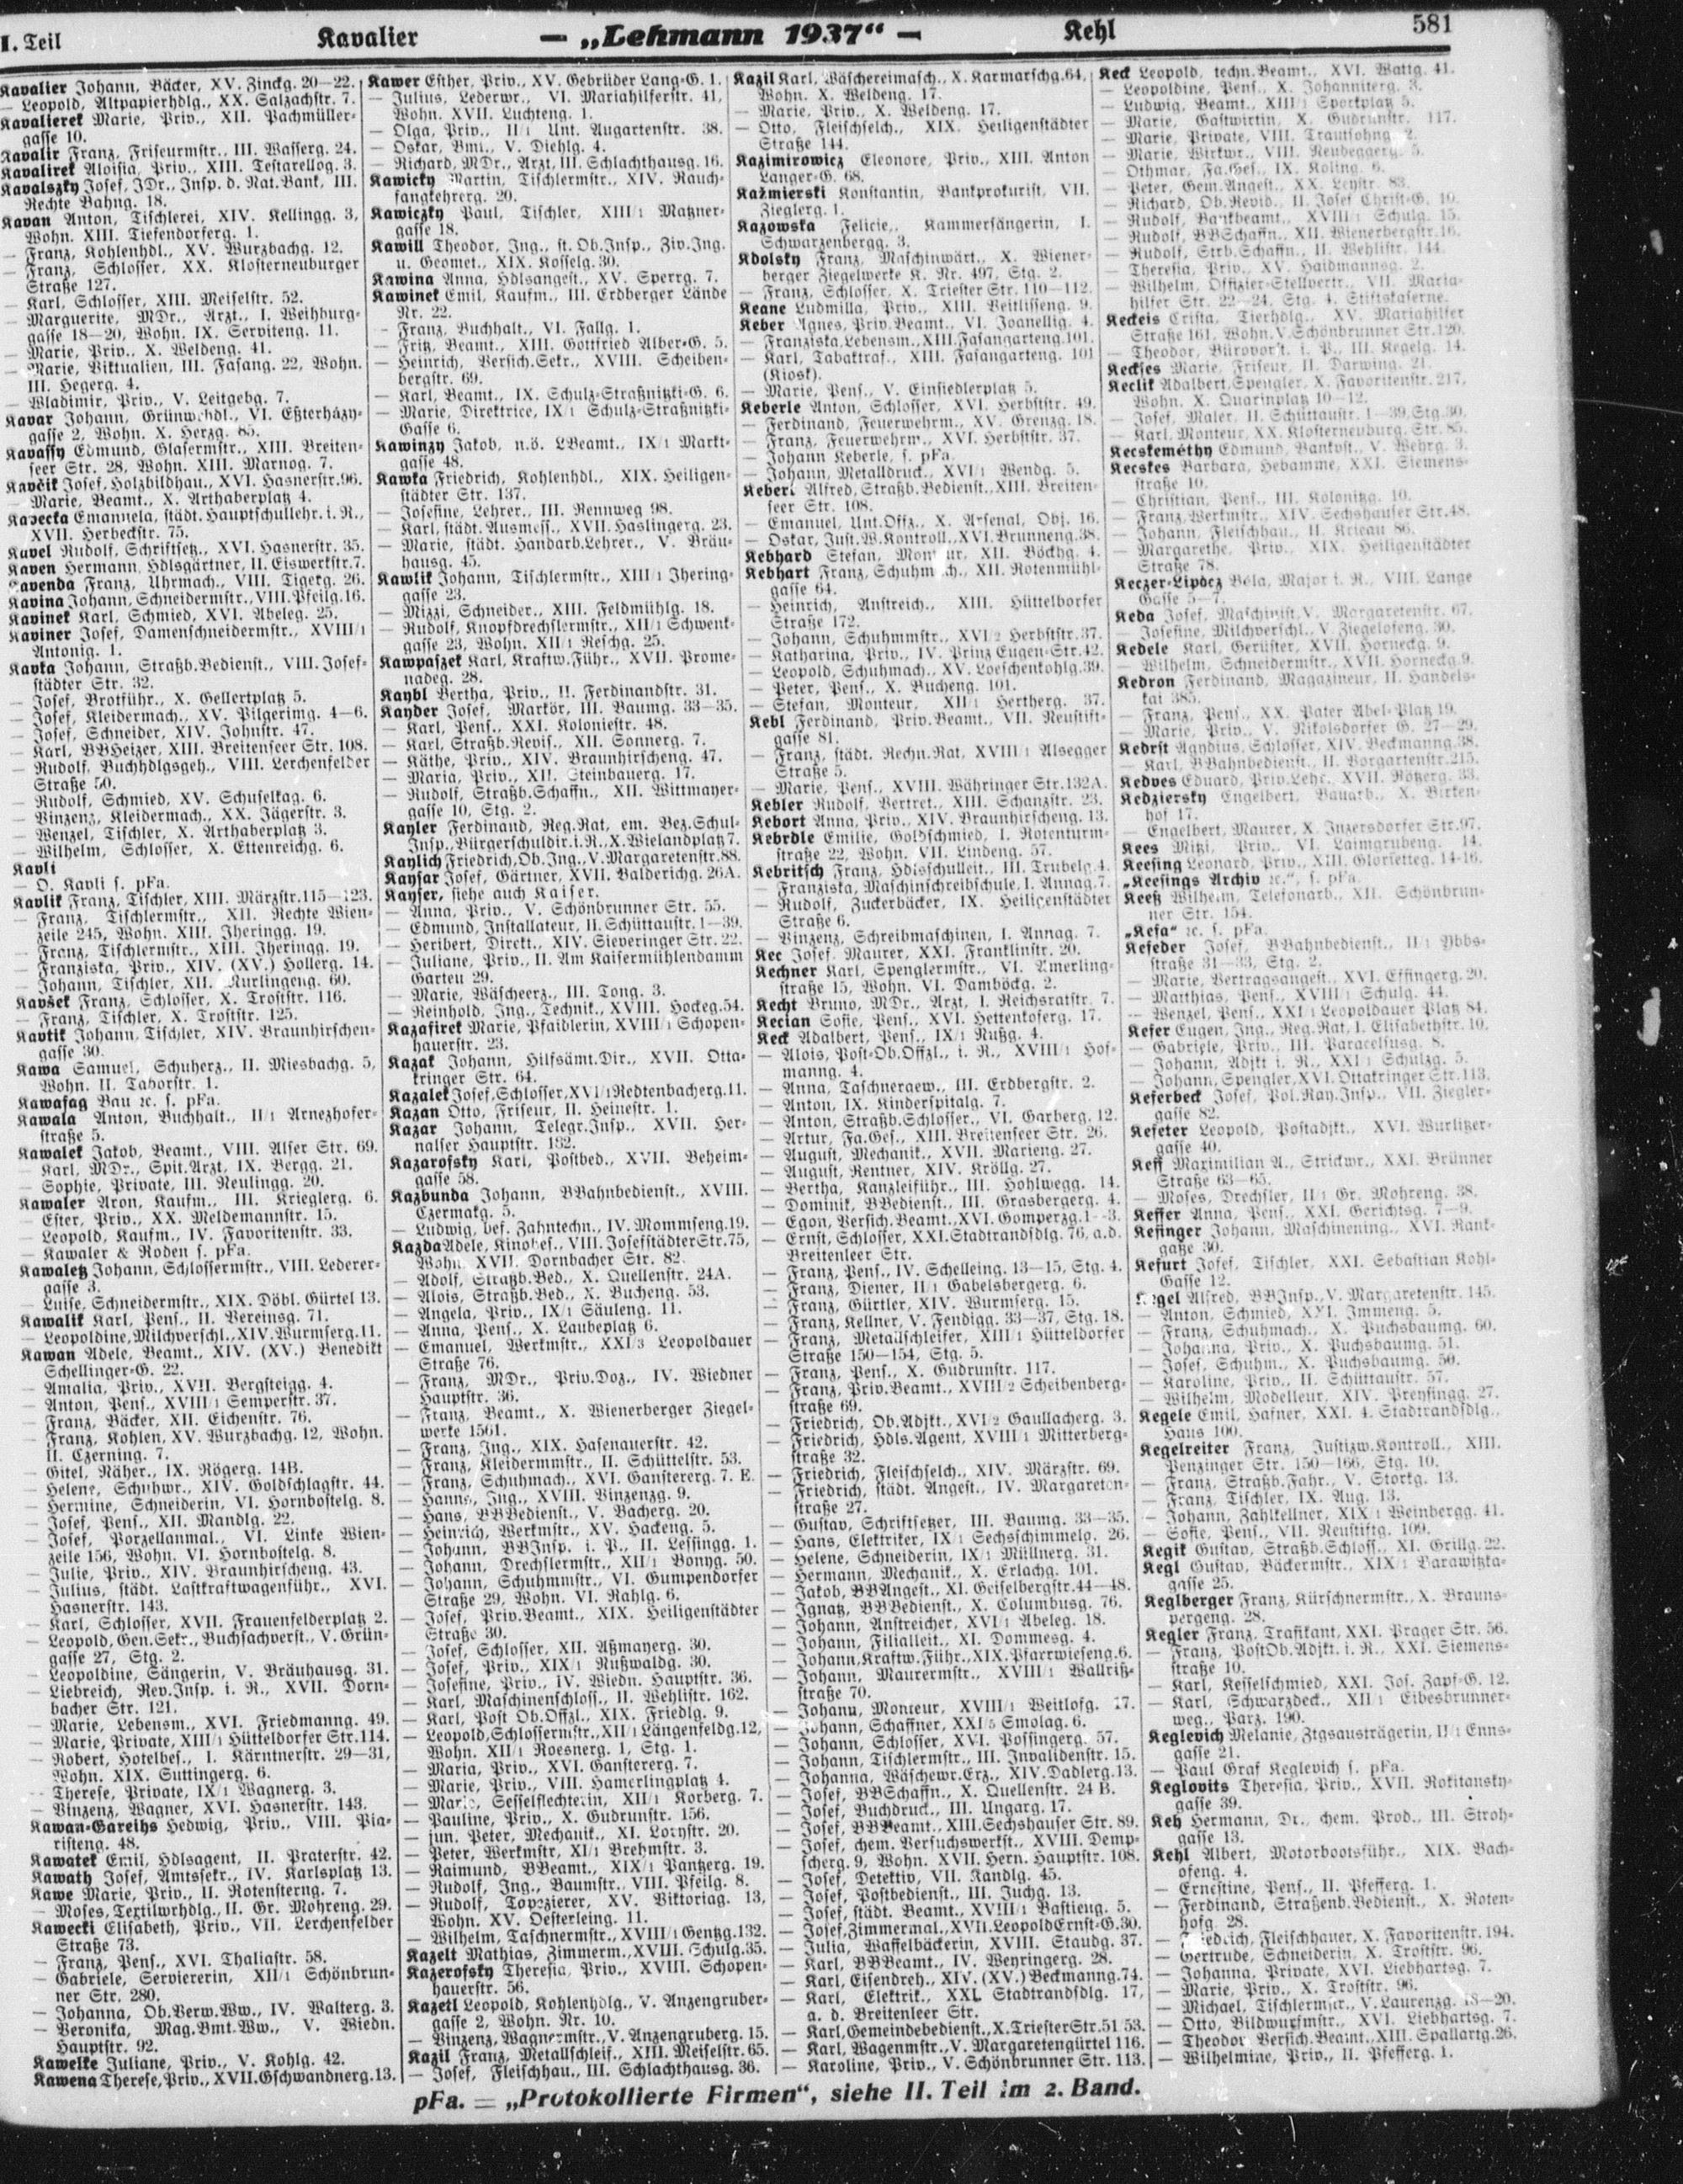 I. Teil
Kavalier
— „Lehmann 1937“ —
Kehl
581
Kavalier Johann, Bäcker, XV. Zinckg. 20—22.
— Leopold, Altpapierhdlg., XX. Salzachstr. 7.
Kavalierek Marie, Priv., XII. Pachmüller-
gasse 10.
Kavalir Franz, Friseurmstr., III. Wasserg. 24.
Kavalirek Aloisia, Priv., XIII. Testarellog. 3.
Kavalszky Josef, JDr., Insp. d. Nat.Bank, III.
Rechte Bahng. 18.
Kavan Anton, Tischlerei, XIV. Kellingg. 3,
Wohn. XIII. Tiefendorferg. 1.
— Franz, Kohlenhdl., XV. Wurzbachg. 12.
— Franz, Schlosser, XX. Klosterneuburger
Straße 127.
— Karl, Schlosser, XIII. Meiselstr. 52.
— Marguerite, MDr., Arzt., I. Weihburg-
gasse 18—20, Wohn. IX. Serviteng. 11.
— Marie, Priv., X. Weldeng. 41.
— Marie, Viktualien, III. Fasang. 22, Wohn.
III. Hegerg. 4.
— Wladimir, Priv., V. Leitgebg. 7.
Kavar Johann, Grünw.hdl., VI. Eßterházy-
gasse 2, Wohn. X. Herzg. 85.
Kavassy Edmund, Glasermstr., XIII. Breiten-
seer Str. 28, Wohn. XIII. Marnog. 7.
Kavčik Josef, Holzbildhau., XVI. Hasnerstr. 96.
— Marie, Beamt., X. Arthaberplatz 4.
Kavecka Emanuela, städt. Hauptschullehr. i. R.,
XVII. Herbeckstr. 75.
Kavel Rudolf, Schriftsetz., XVI. Hasnerstr. 35.
Kaven Hermann, Hdlsgärtner, II. Eiswerkstr. 7.
Kavenda Franz, Uhrmach., VIII. Tigerg. 26.
Kavina Johann, Schneidermstr., VIII. Pfeilg. 16.
Kavinek Karl, Schmied, XVI. Abeleg. 25.
Kaviner Josef, Damenschneidermstr., XVIII/1
Antonig. 1.
Kavka Johann, Straßb.Bedienst., VIII. Josef-
städter Str. 32.
— Josef, Brotführ., X. Gellertplatz 5.
— Josef, Kleidermach., XV. Pilgerimg. 4—6.
— Josef, Schneider, XIV. Johnstr. 47.
— Karl, BBHeizer, XIII. Breitenseer Str. 108.
— Rudolf, Buchhdlgsgeh., VIII. Lerchenfelder
Straße 50.
— Rudolf, Schmied, XV. Schuselkag. 6.
— Vinzenz, Kleidermach., XX. Jägerstr. 3.
— Wenzel, Tischler, X. Arthaberplatz 3.
— Wilhelm, Schlosser, X. Ettenreichg. 6.
Kavli
— O. Kavli s. pFa.
Kavlik Franz, Tischler, XIII. Märzstr. 115—123.
— Franz, Tischlermstr., XII. Rechte Wien-
zeile 245, Wohn. XIII. Jheringg. 19.
— Franz, Tischlermstr., XIII. Jheringg. 19.
— Franziska, Priv., XIV. (XV.) Hollerg. 14.
— Johann, Tischler, XII. Murlingeng. 60.
Kavšek Franz, Schlosser, X. Troststr. 116.
— Franz, Tischler, X. Troststr. 125.
Kavtik Johann, Tischler, XIV. Braunhirschen-
gasse 30.
Kawa Samuel, Schuherz., II. Miesbachg. 5,
Wohn. II. Taborstr. 1.
Kawafag Bau ꝛc. s. pFa.
Kawala Anton, Buchhalt., II/1 Arnezhofer-
straße 5.
Kawalek Jakob, Beamt., VIII. Alser Str. 69.
— Karl, MDr., Spit.Arzt, IX. Bergg. 21.
— Sophie, Private, III. Reulingg. 20.
Kawaler Aron, Kaufm., III. Krieglerg. 6.
— Ester, Priv., XX. Meldemannstr. 15.
— Leopold, Kaufm., IV. Favoritenstr. 33.
— Kawaler & Roden s. pFa.
Kawaletz Johann, Schlossermstr., VIII. Lederer-
gasse 3.
— Luise, Schneidermstr., XIX. Döbl. Gürtel 13.
Kawalik Karl, Pens., II. Vereinsg. 71.
— Leopoldine, Milchverschl., XIV. Wurmserg. 11.
Kawan Adele, Beamt., XIV. (XV.) Benedikt
Schellinger-G. 22.
— Amalia, Priv., XVII. Bergsteigg. 4.
— Anton, Pens., XVIII/1 Semperstr. 37.
— Franz, Bäcker, XII. Eichenstr. 76.
— Franz, Kohlen, XV. Wurzbachg. 12, Wohn.
II. Czerning. 7.
— Gitel, Näher., IX. Rögerg. 14B.
— Helene, Schuhwr., XIV. Goldschlagstr. 44.
— Hermine, Schneiderin, VI. Hornbostelg. 8.
— Josef, Pens., XII. Mandlg. 22.
— Josef, Porzellanmal., VI. Linke Wien-
zeile 156, Wohn. VI. Hornbostelg. 8.
— Julie, Priv., XIV. Braunhirscheng. 43.
— Julius, städt. Lastkraftwagenführ., XVI.
Hasnerstr. 143.
— Karl, Schlosser, XVII. Frauenfelderplatz 2.
— Leopold, Gen.Sekr., Buchsachverst., V. Grün-
gasse 27, Stg. 2.
— Leopoldine, Sängerin, V. Bräuhausg. 31.
— Liebreich, Rev.Insp. i. R., XVII. Dorn-
bacher Str. 121.
— Marie, Lebensm., XVI. Friedmanng. 49.
— Marie, Private, XIII/1 Hütteldorfer Str. 114.
— Robert, Hotelbes., I. Kärntnerstr. 29—31,
Wohn. XIX. Suttingerg. 6.
— Therese, Private, IX/1 Wagnerg. 3.
— Vinzenz, Wagner, XVI. Hasnerstr. 143.
Kawan-Gareihs Hedwig, Priv., VIII. Pia-
risteng. 48.
Kawatek Emil, Hdlsagent, II. Praterstr. 42.
Kawath Josef, Amtssekr., IV. Karlsplatz 13.
Kawe Marie, Priv., II. Rotensterng. 7.
— Moses, Textilwrhdlg., II. Gr. Mohreng. 29.
Kawecki Elisabeth, Priv., VII. Lerchenfelder
Straße 73.
— Franz, Pens., XVI. Thaliastr. 58.
— Gabriele, Serviererin, XII/1 Schönbrun-
ner Str. 280.
— Johanna, Ob.Verw.Ww., IV. Walterg. 3.
— Veronika, Mag.Bmt.Ww., V. Wiedn.
Hauptstr. 92.
Kawelke Juliane, Priv., V. Kohlg. 42.
Kawena Therese, Priv., XVII. Gschwandnerg. 13.
Kawer Esther, Priv., XV. Gebrüder Lang-G. 1.
— Julius, Lederwr., VI. Mariahilferstr. 41,
Wohn. XVII. Luchteng. 1.
— Olga, Priv., II/1 Unt. Augartenstr. 38.
— Oskar, Bmt., V. Diehlg. 4.
— Richard, MDr., Arzt, III. Schlachthausg. 16.
Kawicky Martin, Tischlermstr., XIV. Rauch-
fangkehrerg. 20.
Kawiczky Paul, Tischler, XIII/1 Matzner-
gasse 18.
Kawill Theodor, Ing., st. Ob.Insp., Ziv.Ing.
u. Geomet., XIX. Kosselg. 30.
Kawina Anna, Hdlsangest., XV. Sperrg. 7.
Kawinek Emil, Kaufm., III. Erdberger Lände
Nr. 22.
— Franz, Buchhalt., VI. Fallg. 1.
— Fritz, Beamt., XIII. Gottfried Alber-G. 5.
— Heinrich, Versich.Sekr., XVIII. Scheiben-
bergstr. 69.
— Karl, Beamt., IX. Schulz-Straßnitzki-G. 6.
— Marie, Direktrice, IX/1 Schulz-Straßnitzki-
Gasse 6.
Kawinzy Jakob, n.ö. LBeamt., IX/1 Markt-
gasse 48.
Kawka Friedrich, Kohlenhdl., XIX. Heiligen-
städter Str. 137.
— Josefine, Lehrer., III. Rennweg 98.
— Karl, städt. Ausmess., XVII. Haslingerg. 23.
— Marie, städt. Handarb.Lehrer., V. Bräu-
hausg. 45.
Kawlik Johann, Tischlermstr., XIII/1 Jhering-
gasse 23.
— Mizzi, Schneider., XIII. Feldmühlg. 18.
— Rudolf, Knopfdrechslermstr., XII/1 Schwenk-
gasse 23, Wohn. XII/1 Reschg. 25.
Kawpaszek Karl, Kraftw.Führ., XVII. Prome-
nadeg. 28.
Kaybl Bertha, Priv., II. Ferdinandstr. 31.
Kayder Josef, Markör, III. Baumg. 33—35.
— Karl, Pens., XXI. Koloniestr. 48.
— Karl, Straßb.Revis., XII. Sonnerg. 7.
— Käthe, Priv., XIV. Braunhirscheng. 47.
— Maria, Priv., XII. Steinbauerg. 17.
— Rudolf, Straßb.Schaffn., XII. Wittmayer-
gasse 10, Stg. 2.
Kayler Ferdinand, Reg.Rat, em. Bez.Schul-
Insp., Bürgerschuldir. i. R., X. Wielandplatz 7.
Kaylich Friedrich, Ob.Ing., V. Margaretenstr. 88.
Kaysar Josef, Gärtner, XVII. Balderichg. 26A.
Kayser, siehe auch Kaiser.
— Anna, Priv., V. Schönbrunner Str. 55.
— Edmund, Installateur, II. Schüttaustr. 1—39.
— Heribert, Direkt., XIV. Sieveringer Str. 22.
— Juliane, Priv., II. Am Kaisermühlendamm
Garten 29.
— Marie, Wäscheerz., III. Tong. 3.
— Reinhold, Ing., Technik., XVIII. Hockeg. 54.
Kazafirek Marie, Pfaidlerin, XVIII/1 Schopen-
hauerstr. 23.
Kazak Johann, Hilfsämt.Dir., XVII. Otta-
kringer Str. 64.
Kazalek Josef, Schlosser, XVI/1 Redtenbacherg. 11.
Kazan Otto, Friseur, II. Heinestr. 1.
Kazar Johann, Telegr.Insp., XVII. Her-
nalser Hauptstr. 192.
Kazarofsky Karl, Postbed., XVII. Beheim-
gasse 58.
Kazbunda Johann, BBahnbedienst., XVIII.
Czermakg. 5.
— Ludwig, bef. Zahntechn., IV. Mommseng. 19.
Kazda Adele, Kinobes., VIII. Josefstädter Str. 75,
Wohn. XVII. Dornbacher Str. 82.
— Adolf, Straßb.Bed., X. Quellenstr. 24A.
— Alois, Straßb.Bed., X. Bucheng. 53.
— Angela, Priv., IX/1 Säuleng. 11.
— Anna, Pens., X. Laubeplatz 6.
— Emanuel, Werkmstr., XXI/3 Leopoldauer
Straße 76.
— Franz, MDr., Priv.Doz., IV. Wiedner
Hauptstr. 36.
— Franz, Beamt., X. Wienerberger Ziegel-
werke 1561.
— Franz, Ing., XIX. Hasenauerstr. 42.
— Franz, Kleidermmstr., II. Schüttelstr. 53.
— Franz, Schuhmach., XVI. Ganstererg. 7. E.
— Hanns, Ing., XVIII. Vinzenzg. 9.
— Hans, BBBedienst., V. Bacherg. 20.
— Heinrich, Werkmstr., XV. Hackeng. 5.
— Johann, BBInsp. i. P., II. Lessingg. 1.
— Johann, Drechslermstr., XII/1 Bonyg. 50.
— Johann, Schuhmmstr., VI. Gumpendorfer
Straße 29, Wohn. VI. Rahlg. 6.
— Josef, Priv.Beamt., XIX. Heiligenstädter
Straße 30.
— Josef, Schlosser, XII. Aßmayerg. 30.
— Josef, Priv., XIX/1 Nußwaldg. 30.
— Josefine, Priv., IV. Wiedn. Hauptstr. 36.
— Karl, Maschinenschloss., II. Wehlistr. 162.
— Karl, Post Ob.Offzl., XIX. Friedlg. 9.
— Leopold, Schlossermstr., XII/1 Längenfeldg. 12,
Wohn. XII/1 Roesnerg. 1, Stg. 1.
— Maria, Priv., XVI. Ganstererg. 7.
— Marie, Priv., VIII. Hamerlingplatz 4.
— Marie, Sesselflechterin, XII/1 Korberg. 7.
— Pauline, Priv., X. Gudrunstr. 156.
— jun. Peter, Mechanik., XI. Lorystr. 20.
— Peter, Werkmstr, XI/1 Brehmstr. 3.
— Raimund, BBeamt., XIX/1 Pantzerg. 19.
— Rudolf, Ing., Baumstr., VIII. Pfeilg. 8.
— Rudolf, Tapezierer, XV. Viktoriag. 13,
Wohn. XV. Oesterleing. 11.
— Wilhelm, Taschnermstr., XVIII/1 Gentzg. 132.
Kazelt Mathias, Zimmerm., XVIII. Schulg. 35.
Kazerofsky Theresia, Priv., XVIII. Schopen-
hauerstr. 56.
Kazetl Leopold, Kohlenhdlg., V. Anzengruber-
gasse 2, Wohn. Nr. 10.
— Vinzenz, Wagnermstr., V. Anzengruberg. 15.
Kazil Franz, Metallschleif., XIII. Meiselstr. 65.
— Josef, Fleischhau., III. Schlachthausg. 36.
Kazil Karl, Wäschereimasch., X. Karmarschg. 64,
Wohn. X. Weldeng. 17.
— Marie, Priv., X. Weldeng. 17.
— Otto, Fleischselch., XIX. Heiligenstädter
Straße 144.
Kazimirowicz Eleonore, Priv., XIII. Anton
Langer-G. 68.
Kaźmierski Konstantin, Bankprokurist, VII.
Zieglerg. 1.
Kazowska Felicie, Kammersängerin, I.
Schwarzenbergg. 3.
Kdolsky Franz, Maschinwärt., X. Wiener-
berger Ziegelwerke K. Nr. 497, Stg. 2.
— Franz, Schlosser, X. Triester Str. 110—112.
Keane Ludmilla, Priv., XIII. Veitlisseng. 9.
Keber Agnes, Priv.Beamt., VI. Joanellig. 4.
— Franziska, Lebensm., XIII. Fasangarteng. 101.
— Karl, Tabaktraf., XIII. Fasangarteng. 101
(Kiosk).
— Marie, Pens., V. Einsiedlerplatz 5.
Keberle Anton, Schlosser, XVI. Herbststr. 49.
— Ferdinand, Feuerwehrm., XV. Grenzg. 18.
— Franz, Feuerwehrm., XVI. Herbststr. 37.
— Johann Keberle, s. pFa.
— Johann, Metalldruck., XVI/1 Wendg. 5.
Keberl Alfred, Straßb.Bedienst., XIII. Breiten-
seer Str. 108.
— Emanuel, Unt.Offz., X. Arsenal, Obj. 16.
— Oskar, Just.W.Kontroll., XVI. Brunneng. 38.
Kebhard Stefan, Monteur, XII. Böckhg. 4.
Kebhart Franz, Schuhmach., XII. Rotenmühl-
gasse 64.
— Heinrich, Anstreich., XIII. Hütteldorfer
Straße 172.
— Johann, Schuhmmstr., XVI/2 Herbststr. 37.
— Katharina, Priv., IV. Prinz Eugen-Str. 42.
— Leopold, Schuhmach., XV. Loeschenkohlg. 39.
— Peter, Pens., X. Bucheng. 101.
— Stefan, Monteur, XII/1 Hertherg. 37.
Kebl Ferdinand, Priv.Beamt., VII. Neustift-
gasse 81.
— Franz, städt. Rechn.Rat, XVIII/1 Alsegger
Straße 5.
— Marie, Pens., XVIII. Währinger Str. 132A.
Kebler Rudolf, Vertret., XIII. Schanzstr. 23.
Kebort Anna, Priv., XIV. Braunhirscheng. 13.
Kebrdle Emilie, Goldschmied, I. Rotenturm-
straße 22, Wohn. VII. Lindeng. 57.
Kebritsch Franz, Hdlsschulleit., III. Trubelg. 4.
— Franziska, Maschinschreibschule, I. Annag. 7.
— Rudolf, Zuckerbäcker, IX. Heiligenstädter
Straße 6.
— Vinzenz, Schreibmaschinen, I. Annag. 7.
Kec Josef, Maurer, XXI. Franklinstr. 20.
Kechner Karl, Spenglermstr., VI. Amerling-
straße 15, Wohn. VI. Damböckg. 2.
Kecht Bruno, MDr., Arzt, I. Reichsratstr. 7.
Kecian Sofie, Pens., XVI. Hettenkoferg. 17.
Keck Adalbert, Pens., IX/1 Nußg. 4.
— Alois, Post-Ob.Offzl., i. R., XVIII/1 Hof-
manng. 4.
— Anna, Taschneraew., III. Erdbergstr. 2.
— Anton, IX. Kinderspitalg. 7.
— Anton, Straßb.Schlosser., VI. Garberg. 12.
— Artur, Fa.Ges., XIII. Breitenseer Str. 26.
— August, Mechanik., XVII. Marieng. 27.
— August, Rentner, XIV. Kröllg. 27.
— Bertha, Kanzleiführ., III. Hohlwegg. 14.
— Dominik, BBedienst., III. Grasbergerg. 4.
— Egon, Versich.Beamt., XVI. Gomperzg. 1—3.
— Ernst, Schlosser, XXI. Stadtrandsdlg. 76, a.d.
Breitenleer Str.
— Franz, Pens., IV. Schelleing. 13—15, Stg. 4.
— Franz, Diener, II/1 Gabelsbergerg. 6.
— Franz, Gürtler, XIV. Wurmserg. 15.
— Franz, Kellner, V. Fendigg. 33—37, Stg. 18.
— Franz, Metallschleifer, XIII/1 Hütteldorfer
Straße 150—154, Stg. 5.
— Franz, Pens., X. Gudrunstr. 117.
— Franz, Priv.Beamt., XVIII/2 Scheibenberg-
straße 69.
— Friedrich, Ob.Adjkt., XVI/2 Gaullacherg. 3.
— Friedrich, Hdls.Agent, XVIII/1 Mitterberg-
straße 32.
— Friedrich, Fleischselch., XIV. Märzstr. 69.
— Friedrich, städt. Angest., IV. Margareten-
straße 27.
— Gustav, Schriftsetzer, III. Baumg. 33—35.
— Hans, Elektriker, IX/1 Sechsschimmelg. 26.
— Helene, Schneiderin, IX/1 Müllnerg. 31.
— Hermann, Mechanik., X. Erlachg. 101.
— Jakob, BBAngest., XI. Geiselbergstr. 44—48.
— Ignatz, BBBedienst., X. Columbusg. 76.
— Johann, Anstreicher, XVI/1 Abeleg. 18.
— Johann, Filialleit., XI. Dommesg. 4.
— Johann, Kraftw.Führ., XIX. Pfarrwieseng. 6.
— Johann, Maurermstr., XVIII/1 Wallriß-
straße 70.
— Johann, Monteur, XVIII/1 Weitlofg. 17.
— Johann, Schaffner, XXI/5 Smolag. 6.
— Johann, Schlosser, XVI. Possingerg. 57.
— Johann, Tischlermstr., III. Invalidenstr. 15.
— Johanna, Wäschewr.Erz., XIV. Dadlerg. 13.
— Josef, BBSchaffn., X. Quellenstr. 24 B.
— Josef, Buchdruck., III. Ungarg. 17.
— Josef, BBBeamt., XIII. Sechshauser Str. 89.
— Josef, chem. Versuchswerkst., XVIII. Demp-
scherg. 9, Wohn. XVII. Hern. Hauptstr. 108.
— Josef, Detektiv, VII. Kandlg. 45.
— Josef, Postbedienst., III. Juchg. 13.
— Josef, städt. Beamt., XVIII/1 Bastieng. 5.
— Josef, Zimmermal., XVII. Leopold Ernst-G. 30.
— Julia, Waffelbäckerin, XVIII. Staudg. 37.
— Karl, BBBeamt., IV. Weyringerg. 28.
— Karl, Eisendreh., XIV. (XV.) Beckmanng. 74.
— Karl, Elektrik., XXI. Stadtrandsdlg. 17,
a. d. Breitenleer Str.
— Karl, Gemeindebedienst., X. Triester Str. 51/53.
— Karl, Wagenmstr., V. Margaretengürtel 116.
— Karoline, Priv., V. Schönbrunner Str. 113.
Keck Leopold, techn.Beamt., XVI. Wattg. 41.
— Leopoldine, Pens., X. Johanniterg. 3.
— Ludwig, Beamt., XIII/1 Sportplatz 5.
— Marie, Gastwirtin, X. Gudrunstr. 117.
— Marie, Private, VIII. Trautsohng. 2.
— Marie, Wirkwr., VIII. Neudeggerg. 5.
— Othmar, Fa.Ges., IX. Koling. 6.
— Peter, Gem.Angest., XX. Leystr. 83.
— Richard, Ob.Revid., II. Josef Christ-G. 10.
— Rudolf, Bankbeamt., XVIII/1 Schulg. 15.
— Rudolf, BBSchaffn., XII. Wienerbergstr. 16.
— Rudolf, Strb.Schaffn., II. Wehlistr. 144.
— Theresia, Priv., XV. Haidmannsg. 2.
— Wilhelm, Offizier-Stellvertr., VII. Maria-
hilfer Str. 22—24, Stg. 4, Stiftskaserne.
Keckeis Crista, Tierhdlg., XV. Mariahilfer
Straße 161, Wohn. V. Schönbrunner Str. 120.
— Theodor, Bürovorst. i. P., III. Kegelg. 14.
Keckses Marie, Friseur, II. Darwing. 21.
Keclik Adalbert, Spengler, X. Favoritenstr. 217,
Wohn. X. Quarinplatz 10—12.
— Josef, Maler, II. Schüttaustr. 1—39, Stg. 30.
— Karl, Monteur, XX. Klosterneuburg. Str. 85.
Kecskeméthy Edmund, Bankvst., V. Wehrg. 3.
Kecskes Barbara, Hebamme, XXI. Siemens-
straße 10.
— Christian, Pens., III. Kolonitzg. 10.
— Franz, Werkmstr., XIV. Sechshauser Str. 48.
— Johann, Fleischhau., II. Krieau 86.
— Margarethe, Priv., XIX. Heiligenstädter
Straße 78.
Keczer-Lipócz Béla, Major i. R., VIII. Lange
Gasse 5—7.
Keda Josef, Maschinist, V. Margaretenstr. 67.
— Josefine, Milchverschl., V. Ziegelofeng. 30.
Kedele Karl, Gerüster, XVII. Horneckg. 9.
— Wilhelm, Schneidermstr., XVII. Horneckg. 9.
Kedron Ferdinand, Magazineur, II. Handels-
kai 385.
— Franz, Pens., XX. Pater Abel-Platz 19.
— Marie, Priv., V. Nikolsdorfer G. 27—29.
Kedrst Agydius, Schlosser, XIV. Beckmanng. 38.
— Karl, BBahnbedienst., II. Vorgartenstr. 215.
Kedves Eduard, Priv.Lehr., XVII. Rötzerg. 33.
Kedziersky Engelbert, Bauarb., X. Birken-
hof 17.
— Engelbert, Maurer, X. Inzersdorfer Str. 97.
Kees Mitzi, Priv., VI. Laimgrubeng. 14.
Keesing Leonard, Priv., XIII. Glorietteg. 14-16.
„Keesings Archiv ꝛc.“, s. pFa.
Keeß Wilhelm, Telefonarb., XII. Schönbrun-
ner Str. 154.
„Kefa“ ꝛc. s. pFa.
Kefeder Josef, BBahnbedienst., II/1 Ybbs-
straße 31—33, Stg. 2.
— Marie, Vertragsangest., XVI. Effingerg. 20.
— Matthias, Pens., XVIII/1 Schulg. 44.
— Wenzel, Pens., XXI/1 Leopoldauer Platz 84.
Kefer Eugen, Ing., Reg.Rat, I. Elisabethstr. 10.
— Gabriele, Priv., III. Paracelsusg. 8.
— Johann, Adjkt i. R., XXI/1 Schulzg. 5.
— Johann, Spengler, XVI. Ottakringer Str. 113.
Keferbeck Josef, Pol.Ray.Insp., VII. Ziegler-
gasse 82.
Kefeter Leopold, Postadjkt., XVI. Wurlitzer-
gasse 40.
Keff Maximilian A., Strickwr., XXI. Brünner
Straße 63—65.
— Moses, Drechsler, II/1 Gr. Mohreng. 38.
Keffer Anna, Pens., XXI. Gerichtsg. 7—9.
Kefinger Johann, Maschinening., XVI. Rank-
gasse 30.
Kefurt Josef, Tischler, XXI. Sebastian Kohl-
Gasse 12.
Kegel Alfred, BBInsp., V. Margaretenstr. 145.
— Anton, Schmied, XXI. Immeng. 5.
— Franz, Schuhmach., X. Puchsbaumg. 60.
— Johanna, Priv., X. Puchsbaumg. 51.
— Josef, Schuhm., X. Puchsbaumg. 50.
— Karoline, Priv., II. Schüttaustr. 57.
— Wilhelm, Modelleur, XIV. Preysingg. 27.
Kegele Emil, Hafner, XXI. 4. Stadtrandsdlg.,
Haus 100.
Kegelreiter Franz, Justizw.Kontroll., XIII.
Penzinger Str. 150—166, Stg. 10.
— Franz, Straßb.Fahr., V. Storkg. 13.
— Franz, Tischler, IX. Aug. 13.
— Johann, Zahlkellner, XIX/1 Weinbergg. 41.
— Sofie, Pens., VII. Neustiftg. 109.
Kegik Gustav, Straßb.Schloss., XI. Grillg. 22.
Kegl Gustav, Bäckermstr., XIX/1 Barawitzka-
gasse 25.
Keglberger Franz, Kürschnermstr., X. Brauns-
pergeng. 28.
Kegler Franz, Trafikant, XXI. Prager Str. 56.
— Franz, PostOb.Adjkt. i. R., XXI. Siemens-
straße 10.
— Karl, Kesselschmied, XXI. Jos. Zapf-G. 12.
— Karl, Schwarzdeck., XII/1 Eibesbrunner-
weg., Parz. 190.
Keglevich Melanie, Ztgsausträgerin, II/1 Enns-
gasse 21.
— Paul Graf Keglevich s. pFa.
Keglovits Theresia, Priv., XVII. Rokitansky-
gasse 39.
Keh Hermann, Dr., chem. Prod., III. Stroh-
gasse 13.
Kehl Albert, Motorbootsführ., XIX. Bach-
ofeng. 4.
— Ernestine, Pens., II. Pfefferg. 1.
— Ferdinand, Straßenb.Bedienst., X. Roten-
hofg. 28.
— Friedrich, Fleischhauer, X. Favoritenstr. 194.
— Gertrude, Schneiderin, X. Troststr. 96.
— Johanna, Private, XVI. Liebhartsg. 7.
— Marie, Priv., X. Troststr. 96.
— Michael, Tischlermstr., V. Laurenzg. 18—20.
— Otto, Bildwurfmstr., XVI. Liebhartsg. 7.
— Theodor, Versich.Beamt., XIII. Spallartg. 26.
— Wilhelmine, Priv., II. Pfefferg. 1.
pFa. = „Protokollierte Firmen“, siehe II. Teil im 2. Band.